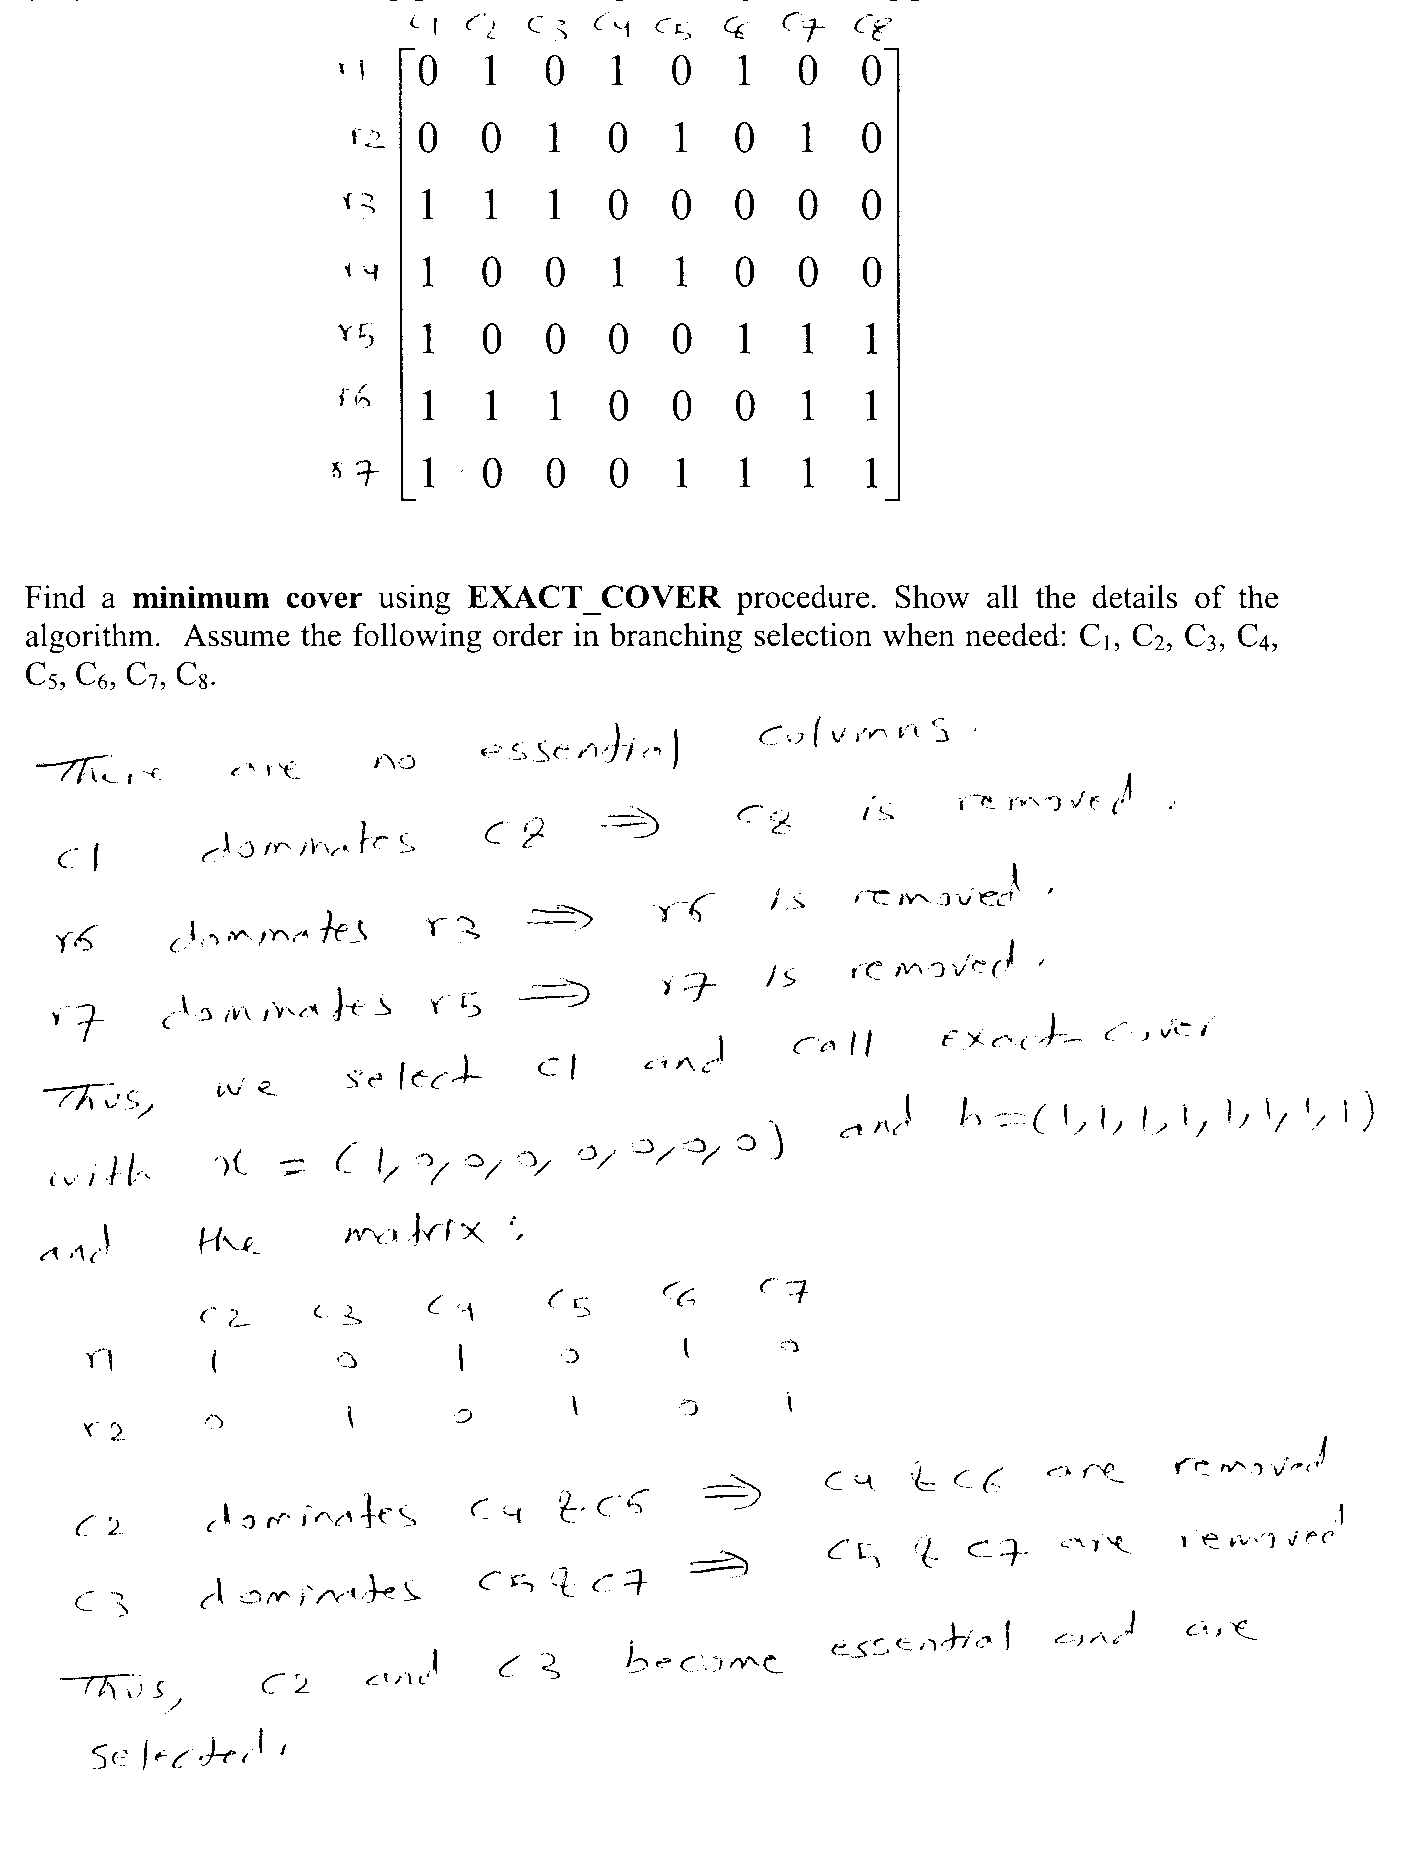 C1 C2 C3 C4 C5 C6 C7 C8
r1 0 1 0 1 0 1 0 0
r2 0 0 1 0 1 0 1 0
r3 1 1 1 0 0 0 0 0
r4 1 0 0 1 1 0 0 0
r5 1 0 0 0 0 1 1 1
r6 1 1 1 0 0 0 1 1
r7 1 0 0 0 1 1 1 1
Find a minimum cover using EXACT_COVER procedure. Show all the details of the
algorithm. Assume the following order in branching selection when needed: C1, C2, C3, C4,
C5, C6, C7, C8.
There are no essential columns.
C1 dominates C8 ⇒ C8 is removed.
r6 dominates r3 ⇒ r6 is removed.
r7 dominates r5 ⇒ r7 is removed.
Thus, we select C1 and call exact cover
with x = (1,0,0,0,0,0,0,0) and b=(1,1,1,1,1,1,1,1)
and the matrix:
C2 C3 C4 C5 C6 C7
r1 1 0 1 0 1 0
r2 0 1 0 1 0 1
C2 dominates C4 & C6 ⇒ C4 & C6 are removed
C3 dominates C5 & C7 ⇒ C5 & C7 are removed
Thus, C2 and C3 become essential and are
selected.